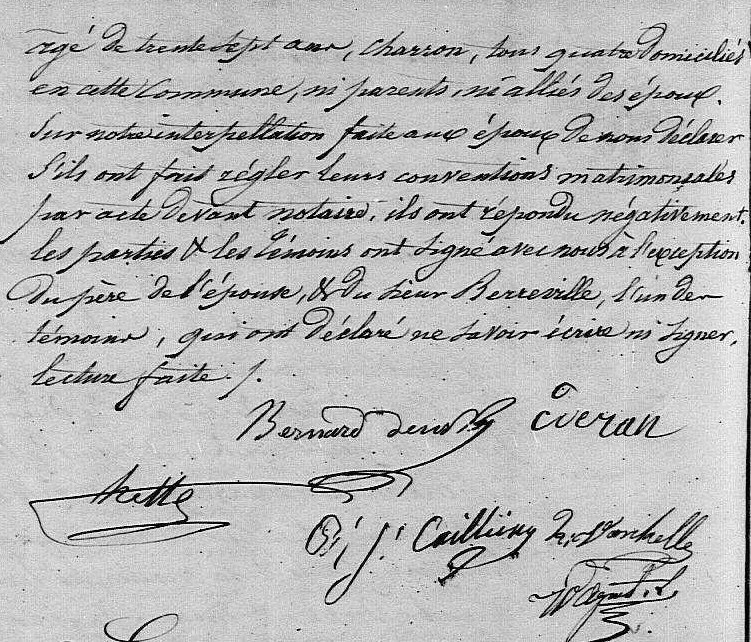 agé de trente sept ans, charron, tous quatre domiciliés
en cette Commune, ni parents, ni alliés des époux.
Sur notre interpellation faite aux époux de nous déclarer
S'ils ont fait régler leurs conventions matrimoniales
par acte devant notaire, ils ont répondu négativement.
les parties & les témoins ont signé avec nous à l'exception
Du père de l'épouse, & du sieur Berreville, l'un des
témoins, qui ont déclaré ne savoir écrire ni signer,
lecture faite /.
Bernard